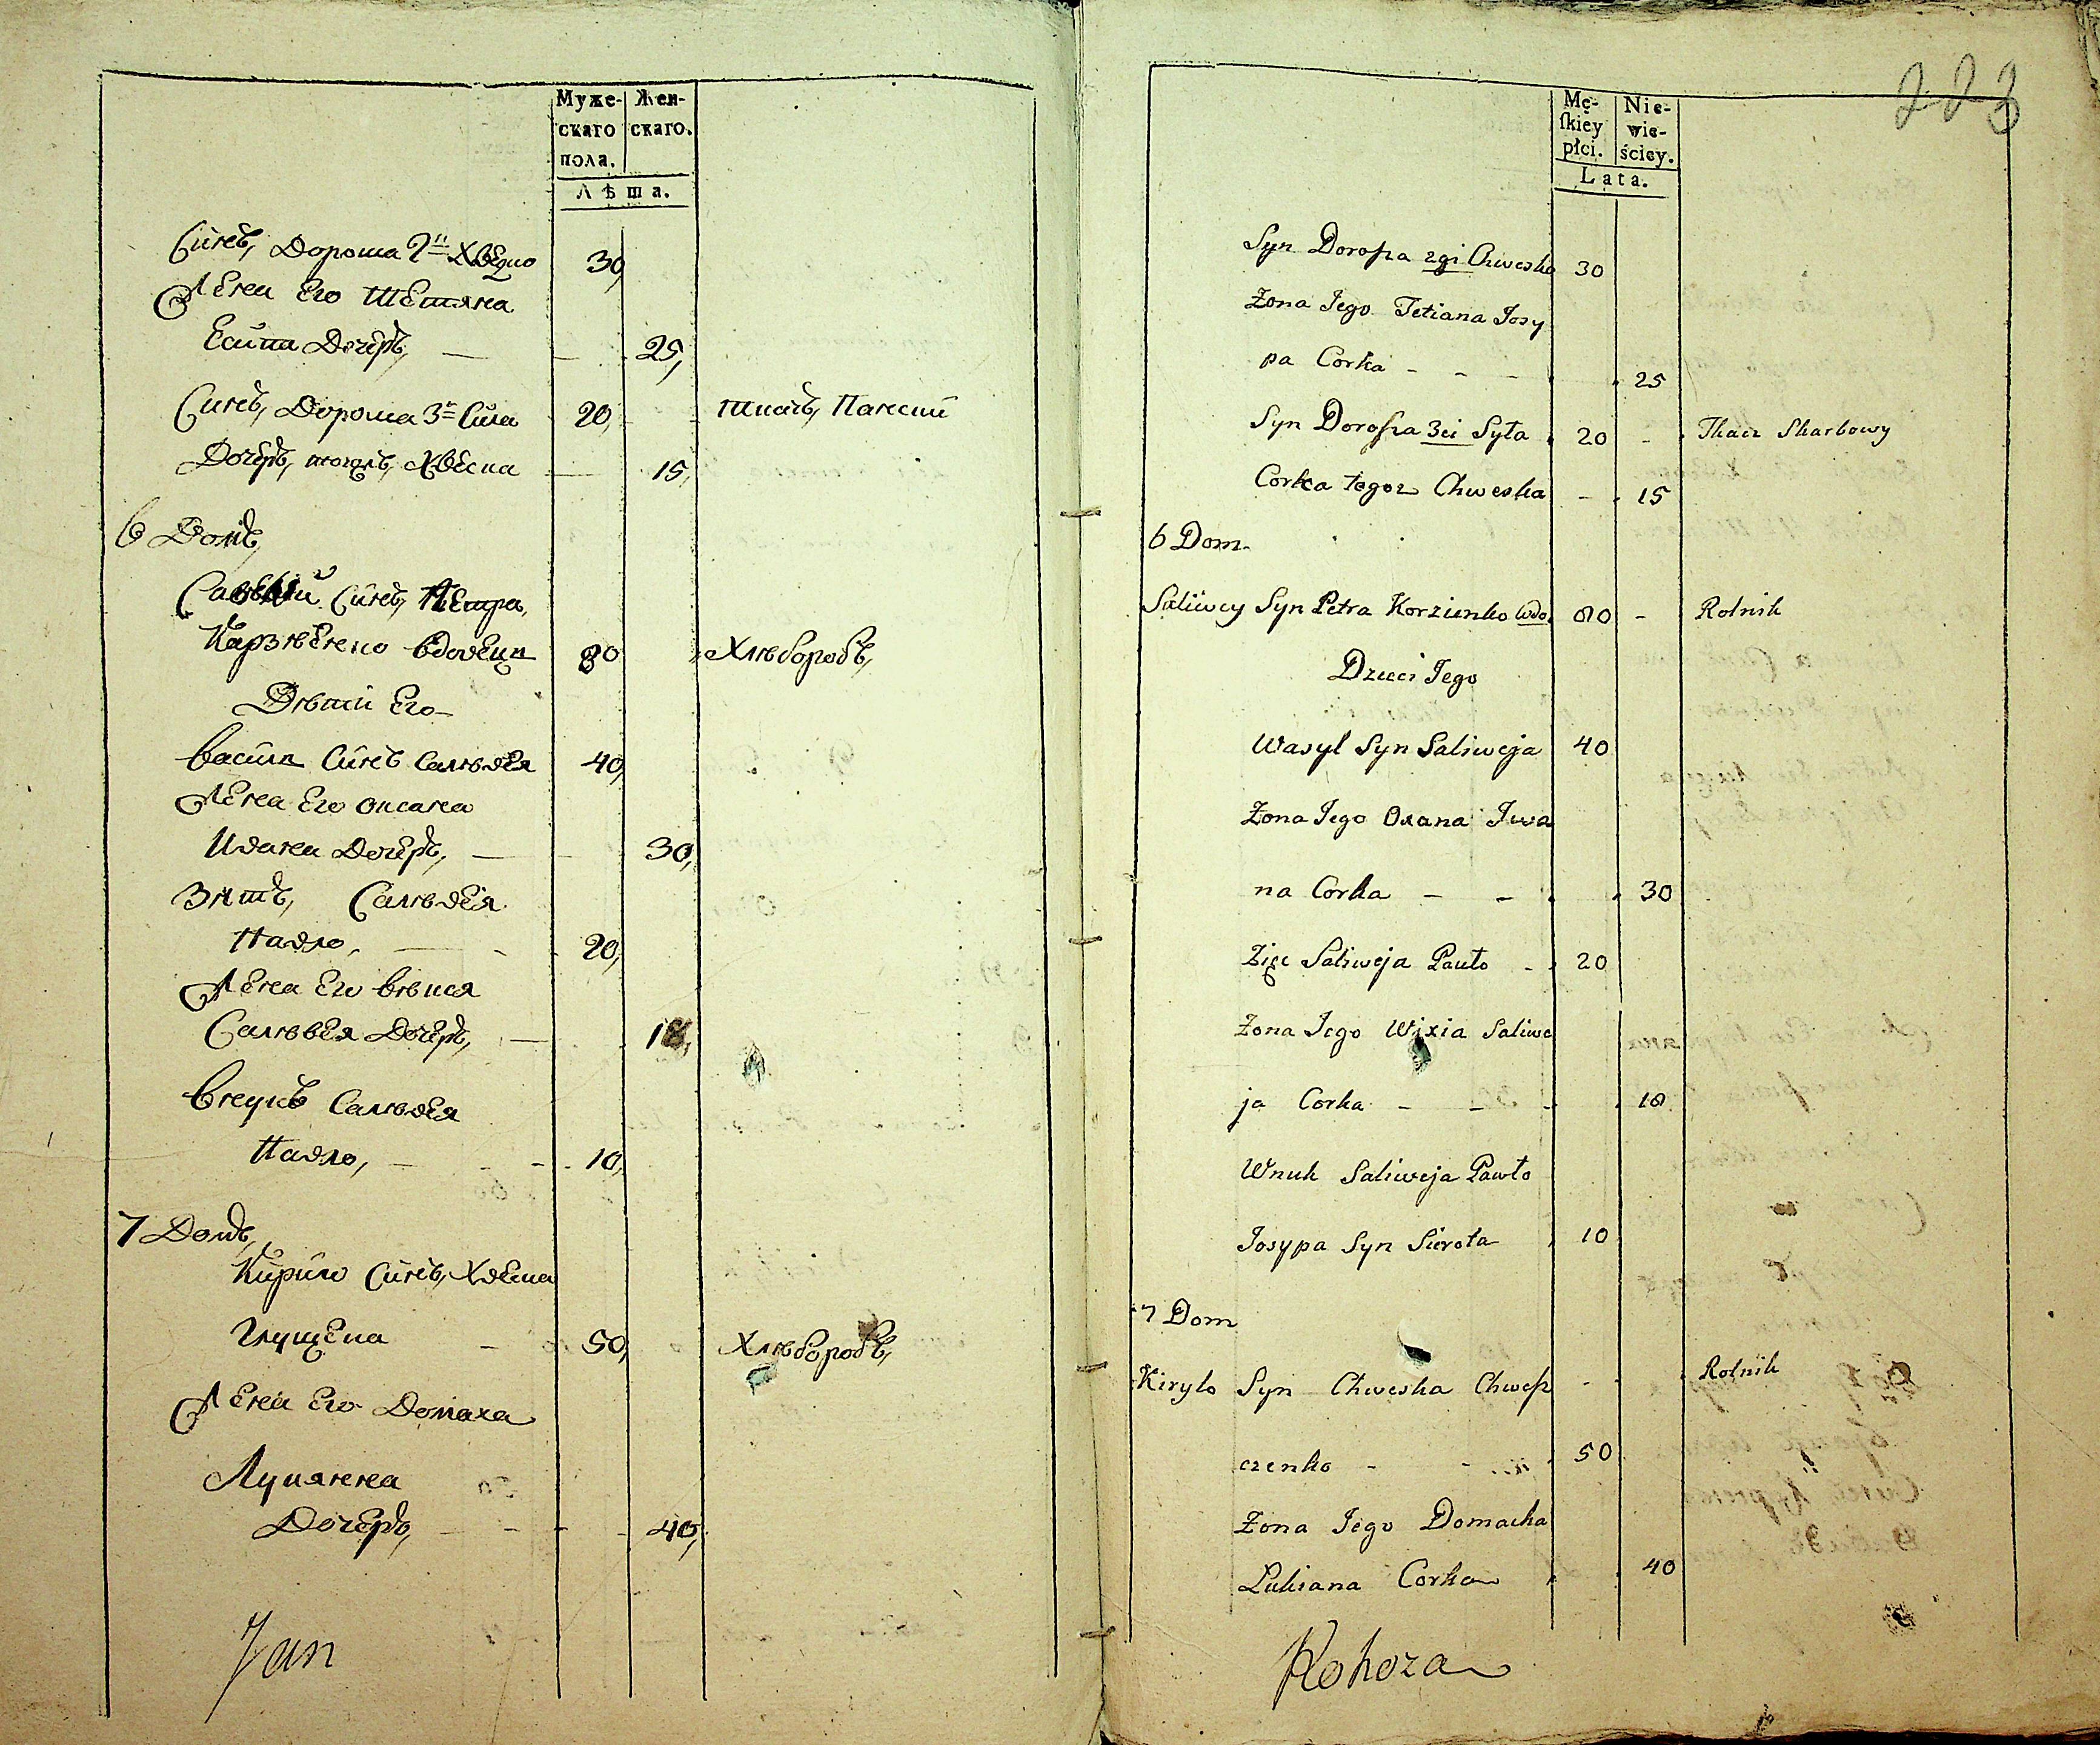 Муже-
скаго
пола.
Жен-
скаго.
Лѣта.
Синъ, Дороша 2й Хведко 30,
Жена Его Тетяна
Есипа Дочеръ, — 25,
Синъ, Дороша 3й Сила 20, ткачъ, Панский
Дочеръ, тогожъ, Хвеска — 15,
6 Домъ,
Синъ, Петра,
Карзѣненко вдовецъ 80 Хлѣборобъ,
Дѣти Его
Василь Синъ Салѣвея 40,
Жена Его Оксана
Ивана Дочеръ, — 30,
Зять, Салѣвея
Павло, — 20,
Жена Его Вѣкся
Салѣвея Дочеръ, — 18,
Внукъ Салѣвея
Павло, — 10,
7 Домъ,
Кирило Синъ, Хвеска
50, Хлѣборобъ,
Жена Его Домаха
Лукяна
Дочеръ, — 40,
Jan
223
Mę-
ſkiey
płci.
Nie-
wie-
ściey.
Lata.
Syn Dorosza 2gi Chwesko 30
Żona Jego Tetiana Josy
pa Corka - - - 25
Syn Dorosza 3ci Syła 20 - Tkacz Skarbowy
Corka tegoz Chweska - 15
6 Dom.
Saliwey Syn Petra Korzienko wdo. 80 - Rolnik
Dzieci Jego
Wasyl Syn Saliweja 40
Żona Jego Oxana Jwa
na Corka - - 30
Zięc Saliweja Pauło - 20
Żona Jego Wixia Saliwe
ja Corka - - - 18
Wnuk Saliweja Pawło
Josypa Syn Sierota 10
7 Dom
Kiryło Syn Chweska Chwesz - - Rolnik
czenko - - 50
Żona Jego Domacha
Lukiana Corka 40
Rohoza